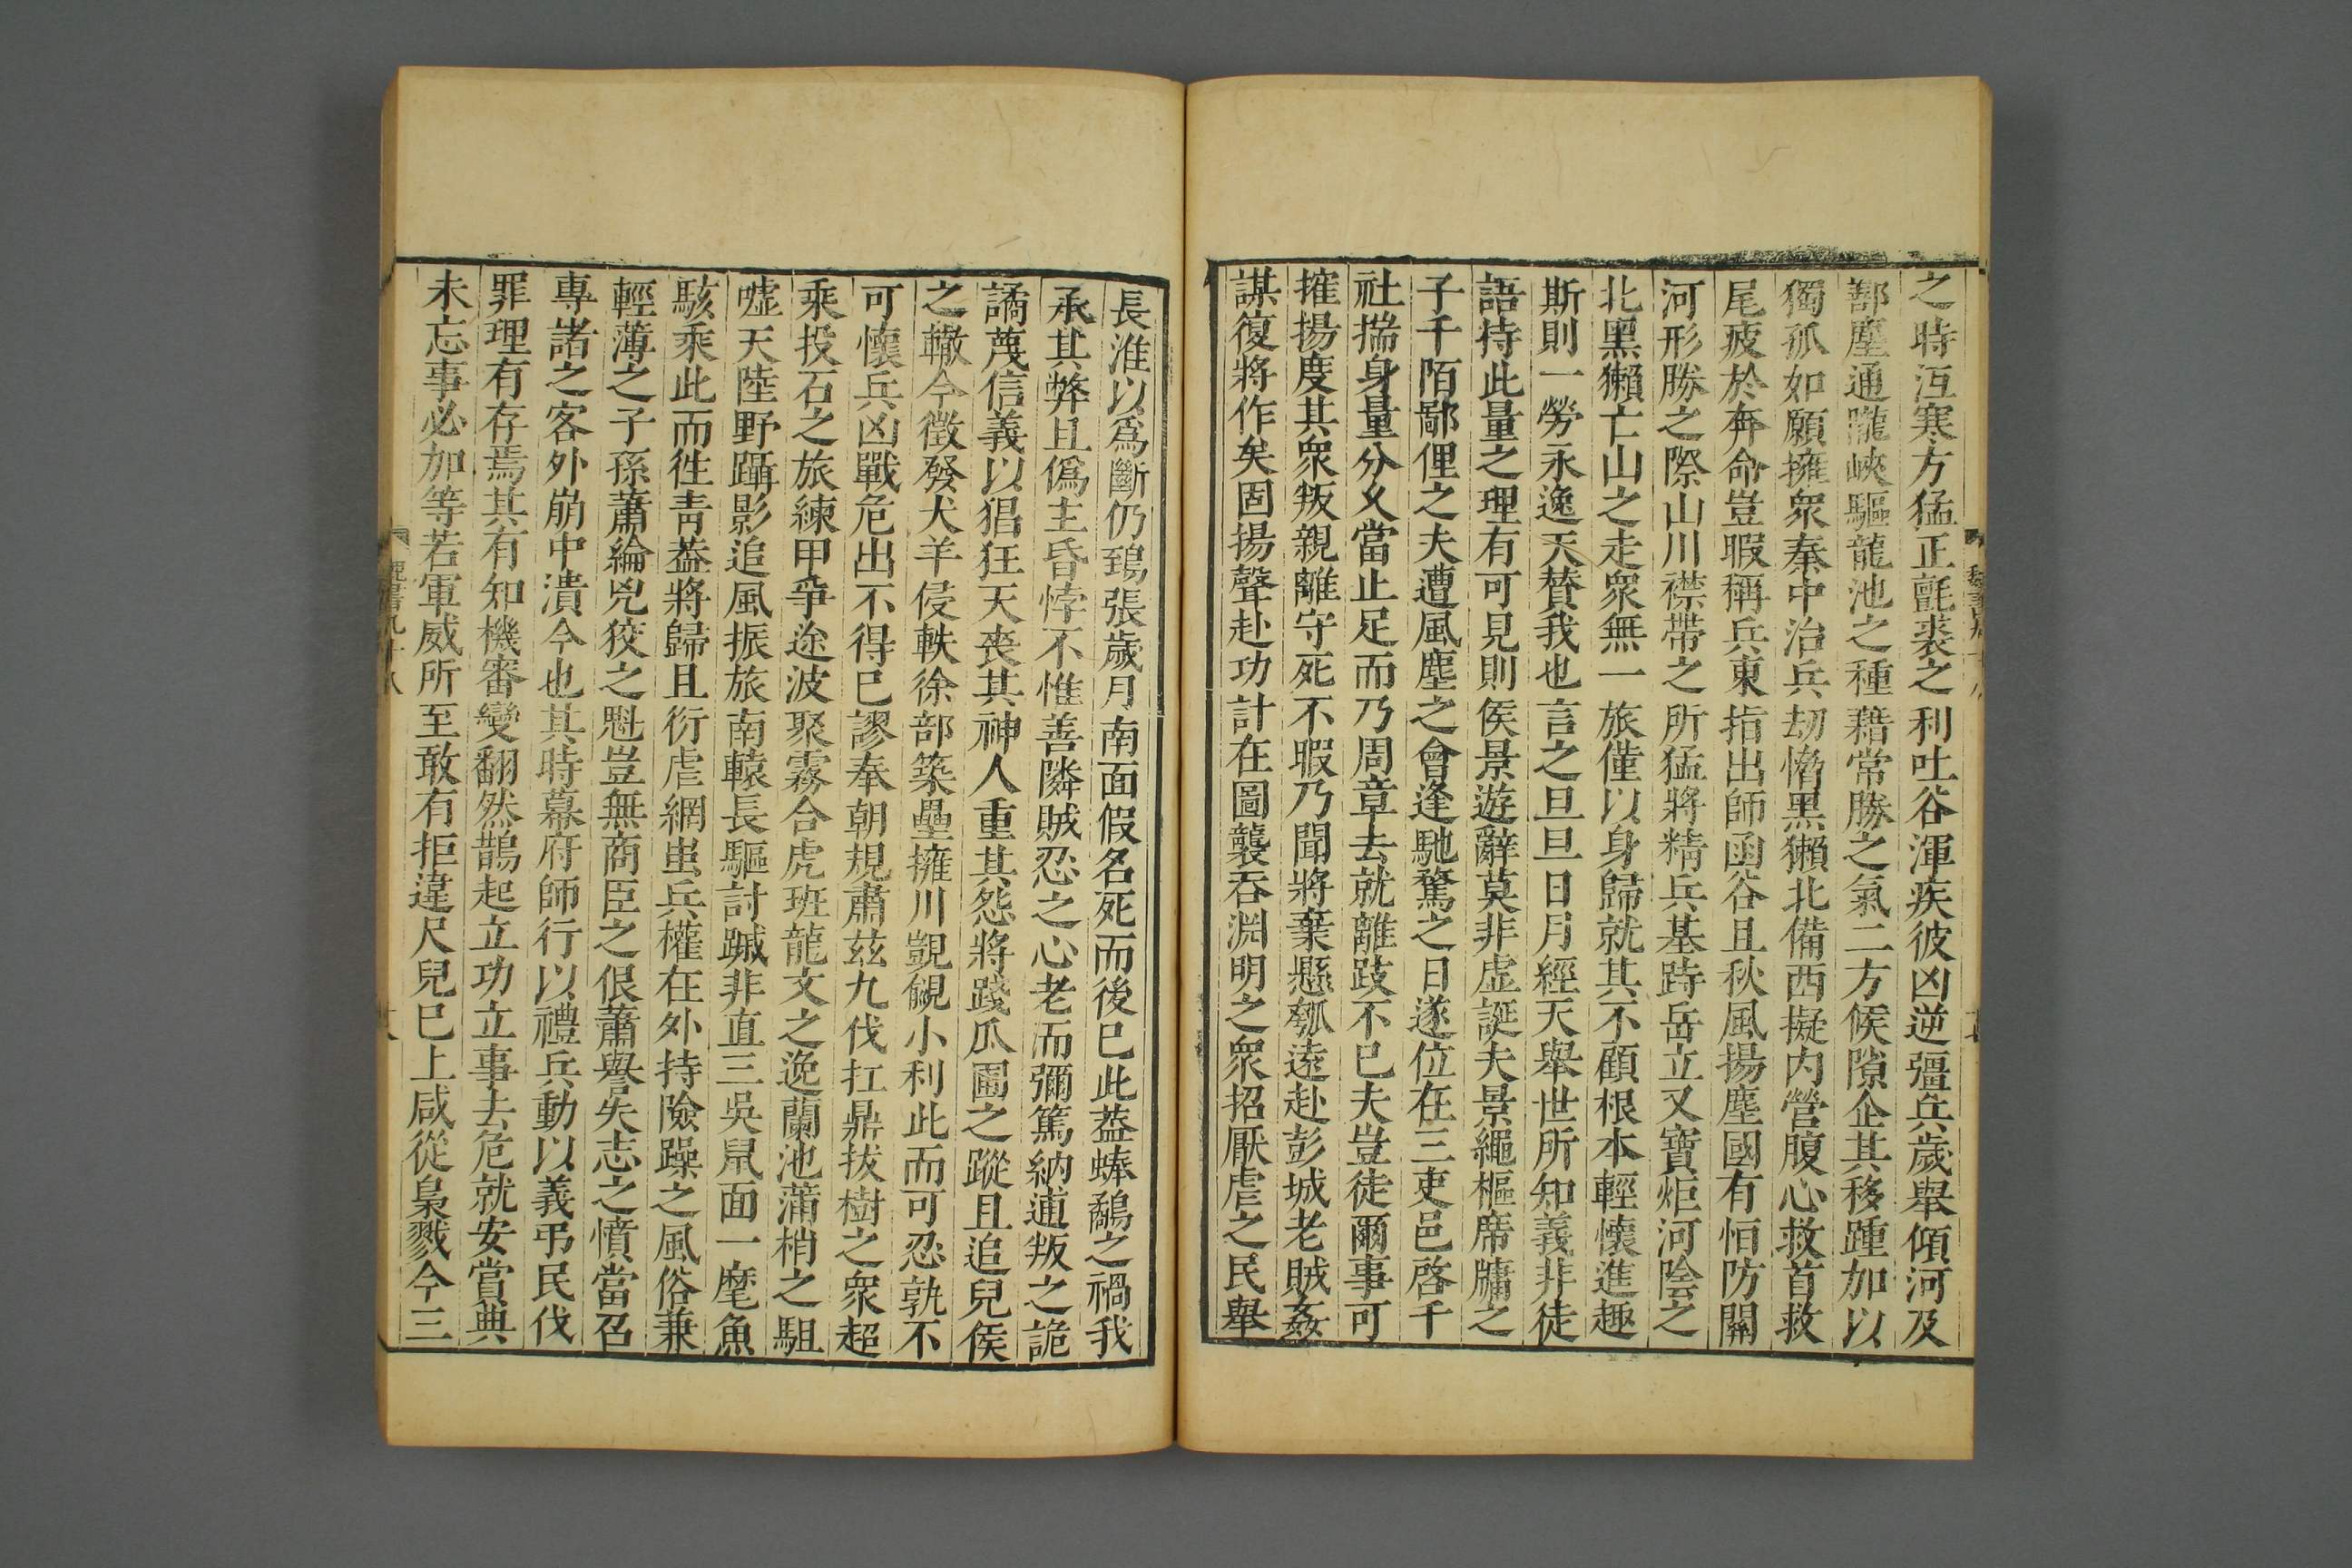 之時沍寒方猛正氈裘之利吐谷渾疾彼凶逆彊兵歲舉傾河及
鄯塵通隴峽驅龍池之種藉常勝之氣二方候隙企其移踵加以
獨孤如願擁衆秦中治兵刼脅黑獺北備西擬内營腹心救首救
尾疲於奔命豈暇稱兵東指出師函谷且秋風揚塵國有恒防關
河形勝之際山川襟帶之所猛將精兵基跱岳立又寶炬河陰之
北黑獺亡山之走衆無一旅僅以身歸就其不顧根本輕懷進趣
斯則一勞永逸天贊我也言之旦旦日月經天舉世所知義非徒
語持此量之理有可見則侯景遊辭莫非虚誕夫景繩樞席牖之
子千陌鄙俚之夫遭風塵之會逢馳騖之日遂位在三吏邑啓千
社揣身量分乆當止足而乃周章去就離跂不已夫豈徒爾事可
搉揚度其衆叛親離守死不暇乃聞將棄懸瓠遠赴彭城老賊姦
謀復將作矣固揚聲赴功計在圖襲吞淵明之衆招厭虐之民舉
長淮以爲斷仍鵄張歲月南面假名死而後巳此蓋蜯鷸之禍我
承其弊且僞主昏悖不惟善隣賊忍之心老而彌篤納逋叛之詭
譎蔑信義以猖狂天喪其神人重其怨將踐瓜圃之蹤且追兒侯
之轍今徵發犬羊侵軼徐部築壘擁川覬覦小利此而可忍孰不
可懷兵凶戰危出不得已謬奉朝規肅茲九伐扛鼎拔樹之衆超
乘投石之旅練甲爭途波聚霧合虎班龍文之逸蘭池蒲梢之駔
噓天陸野躡影追風振旅南轅長驅討蹴非直三吳鼠面一麾魚
駭乘此而徃青蓋將歸且衍虐網蚩兵權在外持險躁之風俗兼
輕薄之子孫蕭綸兇狡之魁豈無商臣之佷蕭譽失志之憤當召
專諸之客外崩中潰今也其時幕府師行以禮兵動以義弔民伐
罪理有存焉其有知機審變翻然鵲起立功立事去危就安賞典
未忘事必加等若軍威所至敢有拒違尺兒巳上咸從梟戮今三